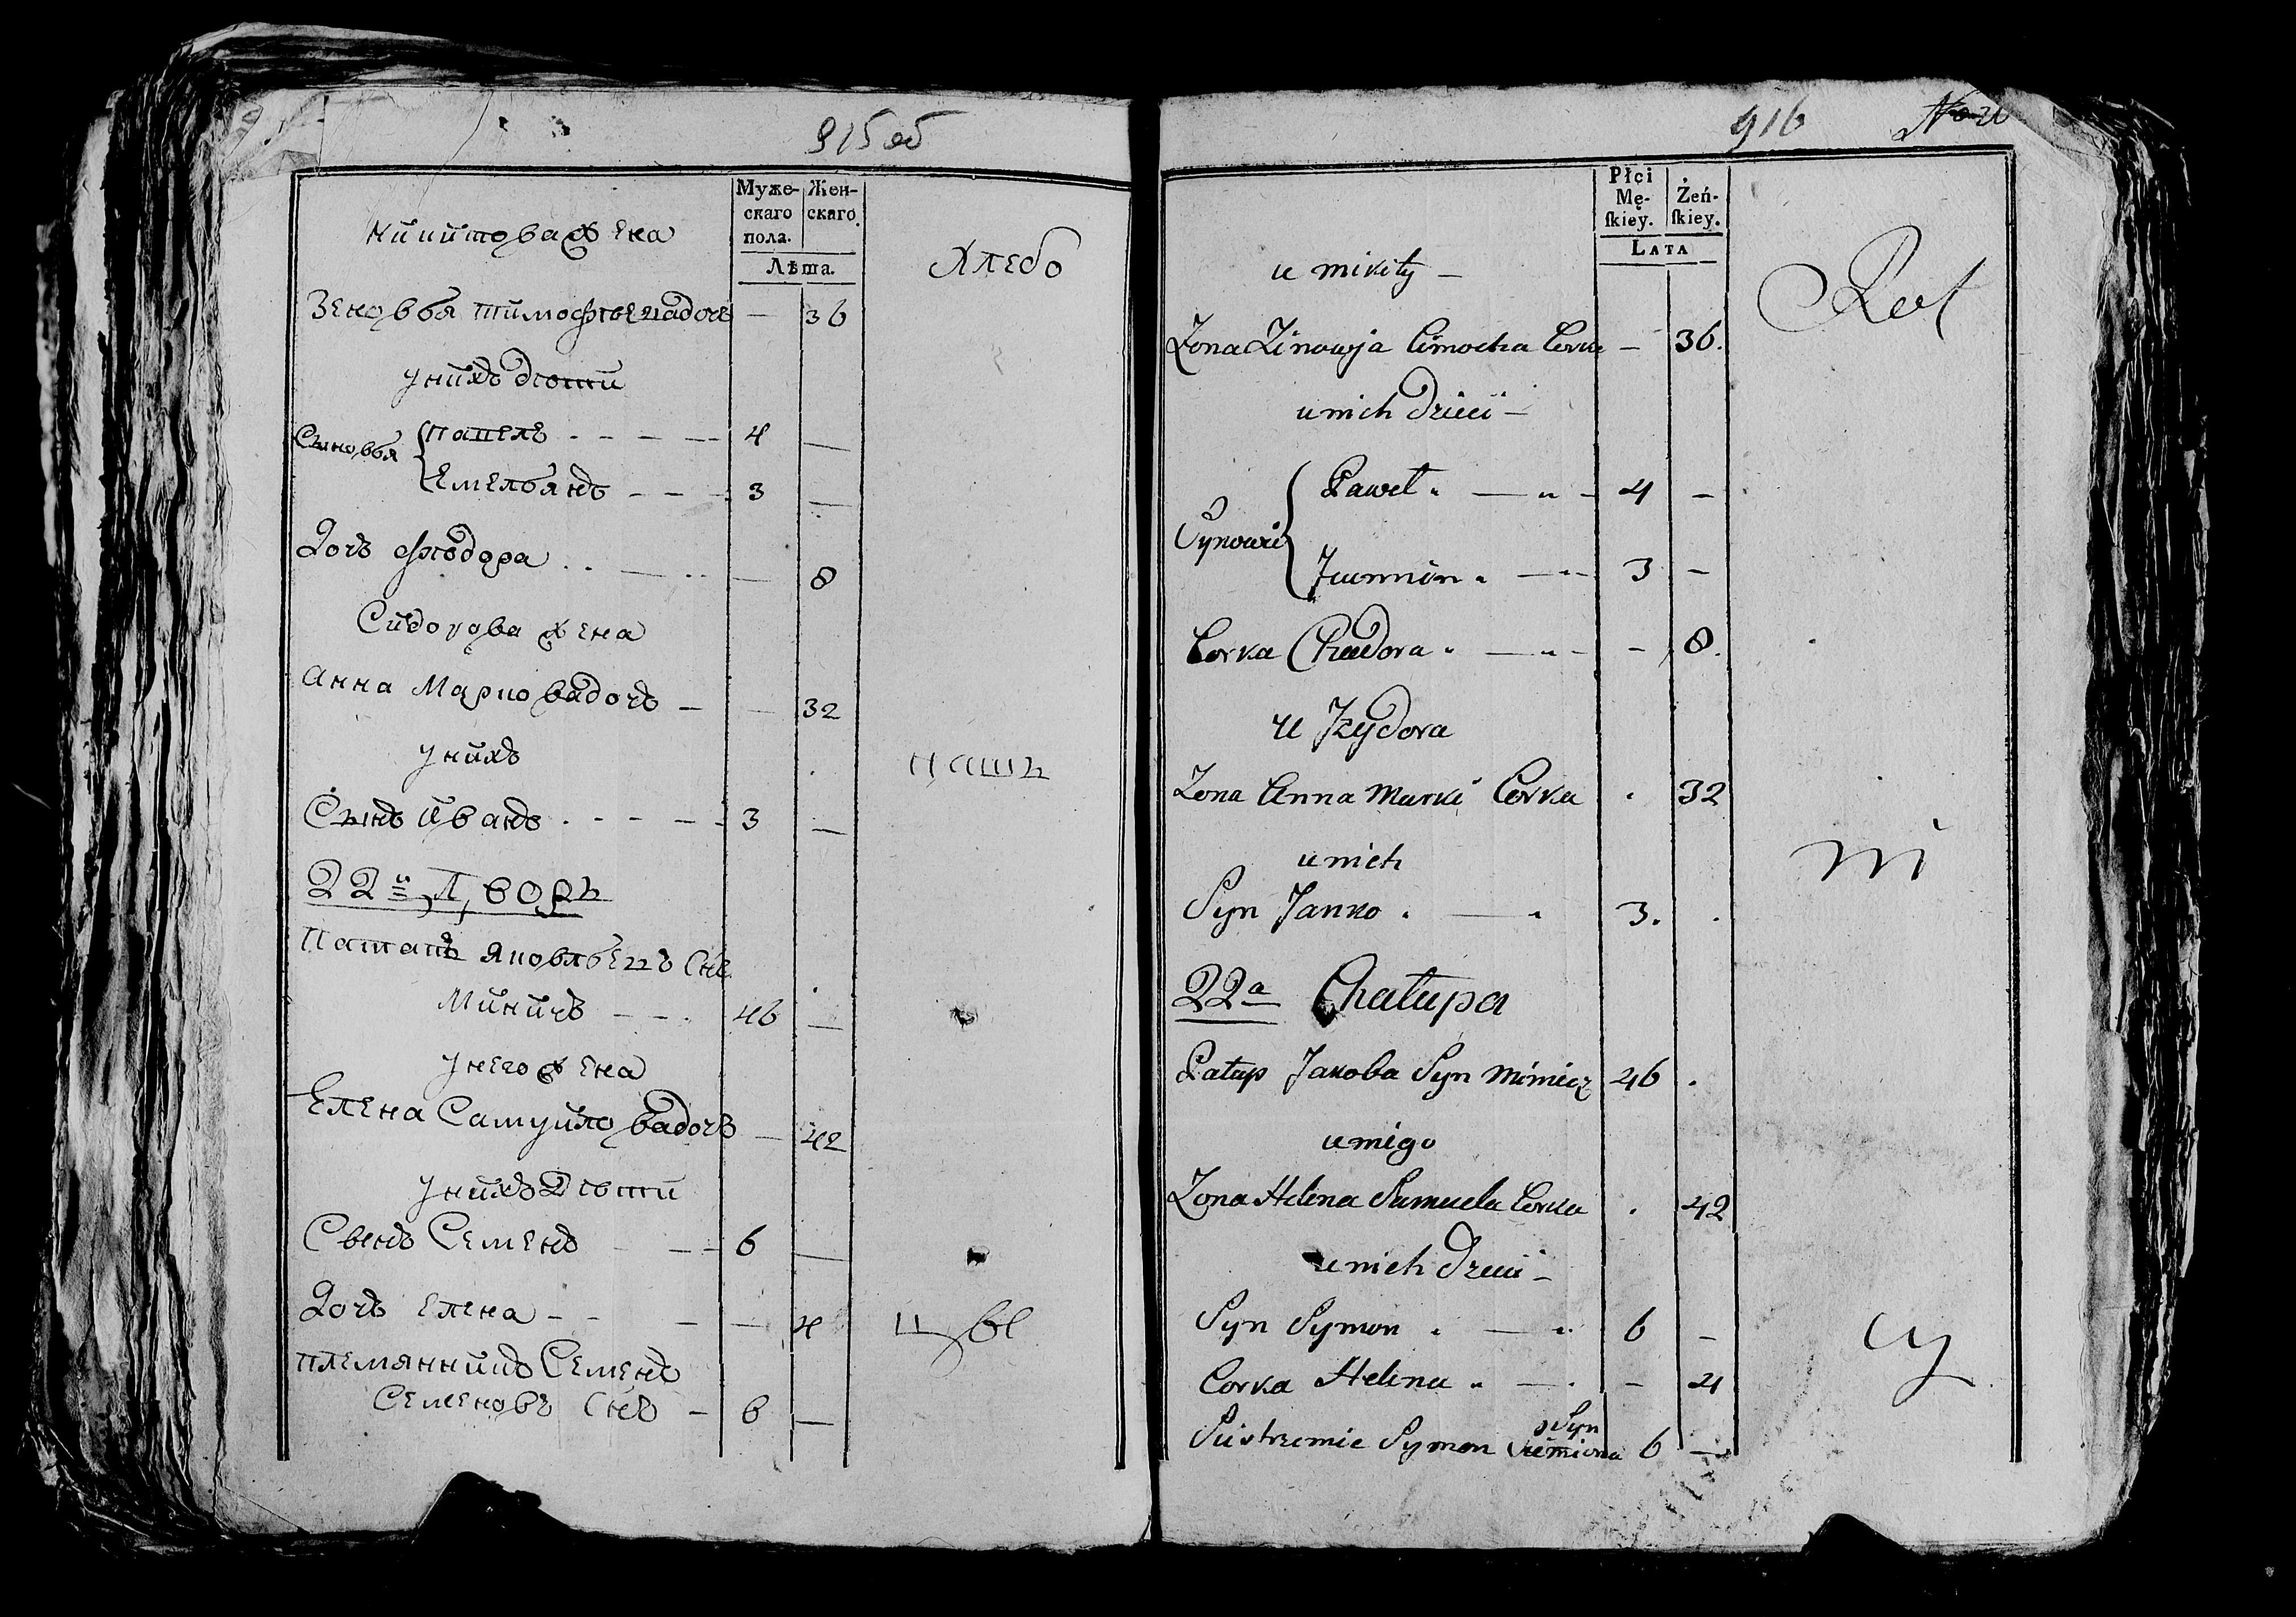 915 об
Муже-
скаго
пола.
Жен-
скаго.
Лѣта.
Никитова жена
Зеновья тимофѣева дочь — 36
у нихъ дѣти
Сыновья { павелъ 4 —
Емельянъ 3 —
Дочь Фѣодора — 8
Сидорова жена
Анна Маркова дочь — 32
у нихъ
Сынъ Иванъ 3 —
22й Дворъ
Патапъ Яковлевъ Снъ
Миничъ 46 —
у него жена
Елена Самуйлова дочь — 42
у нихъ дѣти
Сынъ Семенъ 6 —
Дочь елена — 4
племянникъ Семенъ
Семеновъ Снъ 6 —
Хлебо
паш
цы
916
Płci
Mę-
ſkiey.
Żeń-
ſkiey.
Lata
u mikity —
Zona Zinowja Cimocha Corka — 36.
u nich dzieci —
Synowie { Paweł 4 —
Jumnion 3 —
Corka Chwedora — 8.
u Jzydora
Zona Anna Marki Corka . 32
u nich
Syn Janko 3. .
22a Chałupa
Patup Jakoba Syn Minicz 46 .
u niego
Zona Helena Samuela Corka . 42
u nich dzieci —
Syn Symon 6 —
Corka Helena — 4
Siostrzenie Symon Siemiona Syn 6 —
Rol
ni
cy